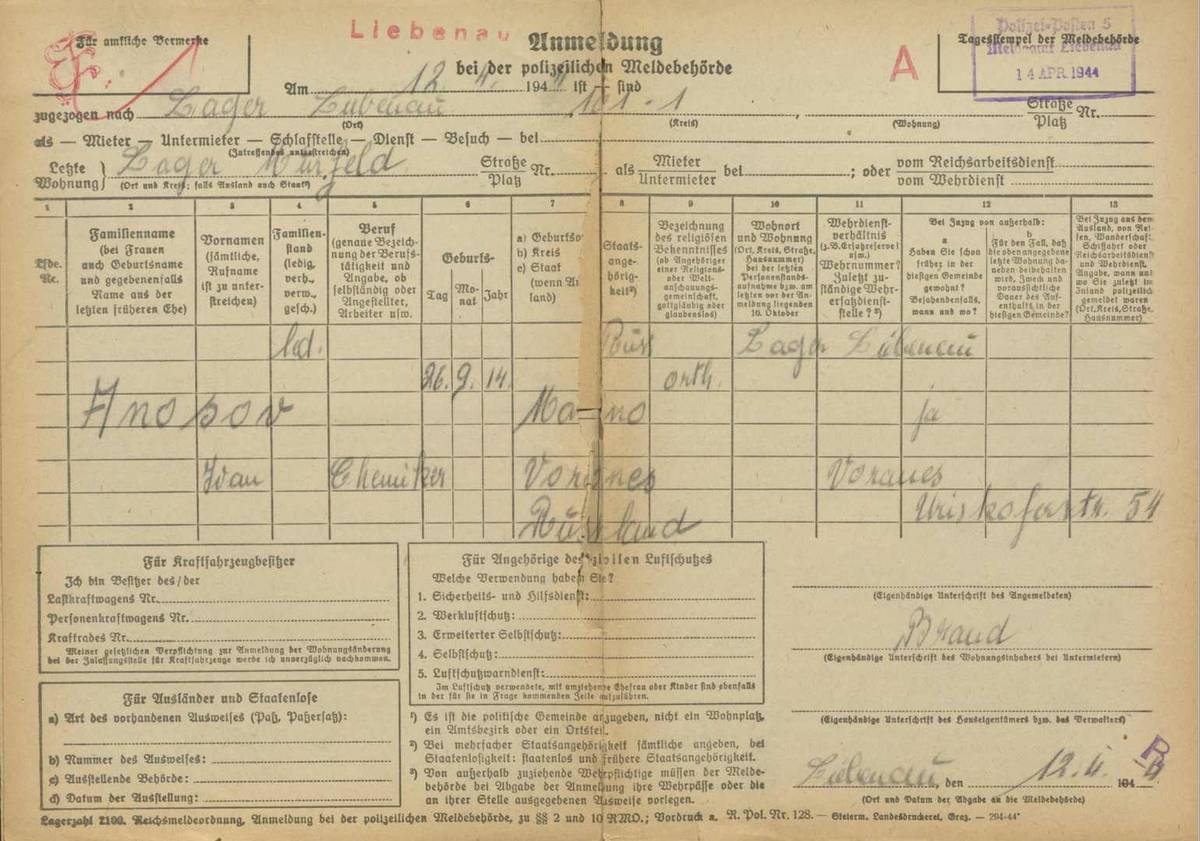 Für amtliche Vermerke
Liebenau
Anmeldung
bei der polizeilichen Meldebehörde
A
Tagesstempel der Meldebehörde
Polizei-Posten 5
Meldeamt Liebenau
14 APR. 1944
Am 12. 4. 1944 ist – sind
zugezogen nach Lager Liebenau 101-1 Straße Platz Nr.
(Ort) (Kreis) (Wohnung)
als — Mieter — Untermieter — Schlafstelle — Dienst — Besuch — bei
(Zutreffendes unterstreichen)
Letzte Wohnung } Lager Straße Platz Nr. als Mieter Untermieter bei ; oder vom Reichsarbeitsdienst vom Wehrdienst
(Ort und Kreis; falls Ausland auch Staat¹)
1 2 3 4 5 6 7 8 9 10 11 12 13
Lfde. Nr.
Familienname
(bei Frauen
auch Geburtsname
und gegebenenfalls
Name aus der
letzten früheren Ehe)
Vornamen
(sämtliche,
Rufname
ist zu unter-
streichen)
Familien-
stand
(ledig,
verh.,
verw.,
gesch.)
Beruf
(genaue Bezeich-
nung der Berufs-
tätigkeit und
Angabe, ob
selbständig oder
Angestellter,
Arbeiter usw.
Geburts-
Tag
Mo-
nat
Jahr
a) Geburtso
b) Kreis
c) Staat
(wenn Au
land)
Staats-
ange-
hörig-
keit²)
Bezeichnung
des religiösen
Bekenntnisses
(ob Angehöriger
einer Religions-
oder Welt-
anschauungs-
gemeinschaft,
gottgläubig oder
glaubenslos)
Wohnort
und Wohnung
(Ort, Kreis, Straße,
Hausnummer)
bei der letzten
Personenstands-
aufnahme bzw. am
letzten vor der An-
meldung liegenden
10. Oktober
Wehrdienst-
verhältnis
(z.B. Ersatzreserve I
usw.)
Wehrnummer?
Zuletzt zu-
ständige Wehr-
ersatzdienst-
stelle? ³)
Bei Zuzug von außerhalb:
a
Haben Sie schon
früher in der
hiesigen Gemeinde
gewohnt?
Bejahendenfalls,
wann und wo?
b
Für den Fall, daß
die oben angegebene
letzte Wohnung da-
neben beibehalten
wird, Zweck und
voraussichtliche
Dauer des Auf-
enthalts in der
hiesigen Gemeinde?
Bei Zuzug aus dem
Ausland, von Rei-
sen, Wanderschaft,
Schiffahrt oder
Reichsarbeitsdienst
und Wehrdienst,
Angabe, wann und
wo Sie zuletzt im
Inland polizeilich
gemeldet waren
(Ort, Kreis, Straße,
Hausnummer)
led. Russ Lager Liebenau
26. 9. 14. orth.
Anosov ja
Ivan Chemiker Voranes
Russland 54
Für Kraftfahrzeugbesitzer
Ich bin Besitzer des/der
Lastkraftwagens Nr.
Personenkraftwagens Nr.
Kraftrades Nr.
Meiner gesetzlichen Verpflichtung zur Anmeldung der Wohnungsänderung
bei der Zulassungsstelle für Kraftfahrzeuge werde ich unverzüglich nachkommen.
Für Ausländer und Staatenlose
a) Art des vorhandenen Ausweises (Paß, Paßersatz):
b) Nummer des Ausweises:
c) Ausstellende Behörde:
d) Datum der Ausstellung:
Für Angehörige des zivilen Luftschutzes
Welche Verwendung haben Sie?
1. Sicherheits- und Hilfsdienst:
2. Werkluftschutz:
3. Erweiterter Selbstschutz:
4. Selbstschutz:
5. Luftschutzwarndienst:
Im Luftschutz verwendete, mit anziehende Ehefrau oder Kinder sind ebenfalls
in der für sie in Frage kommenden Zeile aufzuführen.
¹) Es ist die politische Gemeinde anzugeben, nicht ein Wohnplatz,
ein Amtsbezirk oder ein Ortsteil.
²) Bei mehrfacher Staatsangehörigkeit sämtliche angeben, bei
Staatenlosigkeit: staatenlos und frühere Staatsangehörigkeit.
³) Von außerhalb zuziehende Wehrpflichtige müssen der Melde-
behörde bei Abgabe der Anmeldung ihre Wehrpässe oder die
an ihrer Stelle ausgegebenen Ausweise vorlegen.
(Eigenhändige Unterschrift des Angemeldeten)
Brand
(Eigenhändige Unterschrift des Wohnungsinhabers bei Untermietern)
(Eigenhändige Unterschrift des Hauseigentümers bzw. des Verwalters)
Liebenau, den 12. 4. 1944
(Ort und Datum der Abgabe an die Meldebehörde)
Lagerzahl 2100. Reichsmeldeordnung, Anmeldung bei der polizeilichen Meldebehörde, zu §§ 2 und 10 RMO.; Vordruck a. R. Pol. Nr. 128. — Steierm. Landesdruckerei, Graz. — 294-44